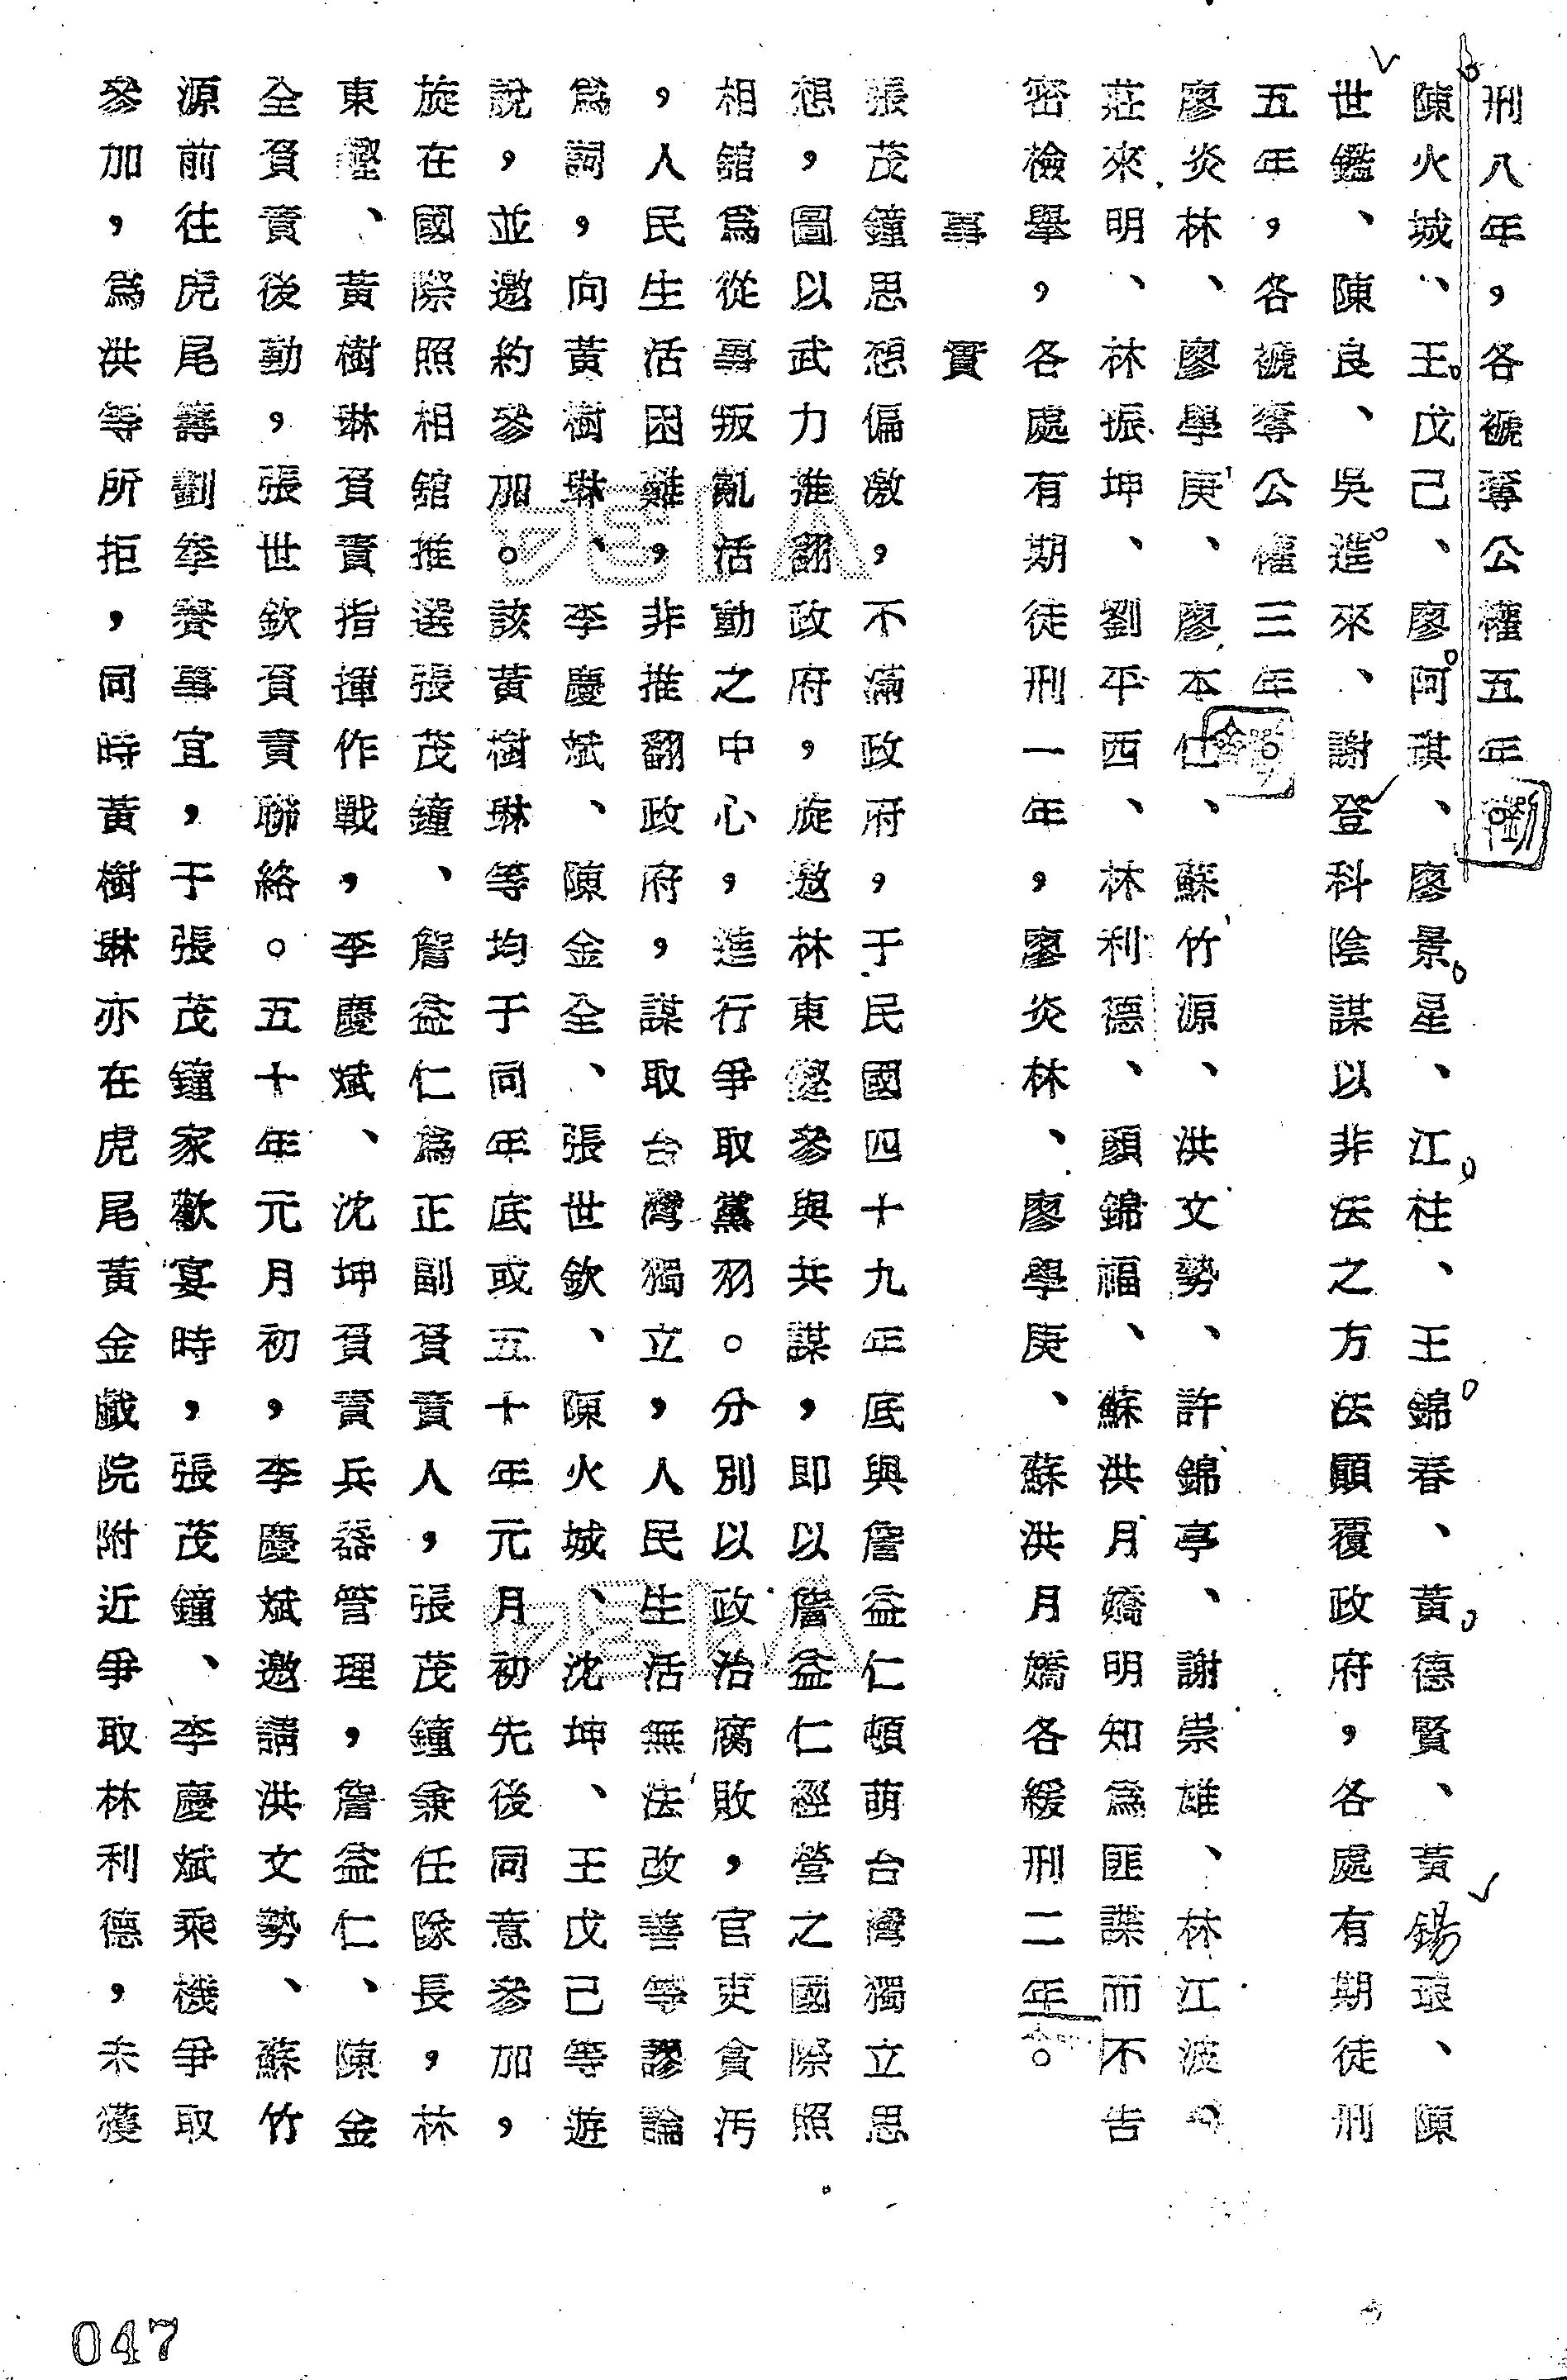 刑八年，各褫奪公權五年
陳火城、王戊己、廖阿琪、廖景星、江柱、王錦春、黃德賢、黃錫琅、陳
世鑑、陳良、吳進來、謝登科陰謀以非法之方法顛覆政府，各處有期徒刑
五年，各褫奪公權三年
廖炎林、廖學庚、廖本仕、蘇竹源、洪文勢、許錦亭、謝崇雄、林江波、
莊來明、林振坤、劉平西、林利德、顏錦福、蘇洪月嬌明知為匪諜而不告
密檢舉，各處有期徒刑一年，廖炎林、廖學庚、蘇洪月嬌各緩刑二年。
事實
張茂鐘思想偏激，不滿政府，于民國四十九年底與詹益仁頓萌台灣獨立思
想，圖以武力推翻政府，旋邀林東鏗參與共謀，即以詹益仁經營之國際照
相舘為從事叛亂活動之中心，進行爭取黨羽。分別以政治腐敗，官吏貪污
，人民生活困難，非推翻政府，謀取台灣獨立，人民生活無法改善等謬論
為詞，向黃樹琳、李慶斌、陳金全、張世欽、陳火城、沈坤、王戊己等遊
說，並邀約參加。該黃樹琳等均于同年底或五十年元月初先後同意參加，
旋在國際照相舘推選張茂鐘、詹益仁為正副負責人，張茂鐘兼任隊長，林
東鏗、黃樹琳負責指揮作戰，李慶斌、沈坤負責兵器管理，詹益仁、陳金
全負責後勤，張世欽負責聯絡。五十年元月初，李慶斌邀請洪文勢、蘇竹
源前往虎尾籌劃舉賽事宜，于張茂鐘家歡宴時，張茂鐘、李慶斌乘機爭取
參加，為洪等所拒，同時黃樹琳亦在虎尾黃金戲院附近爭取林利德，未獲
047